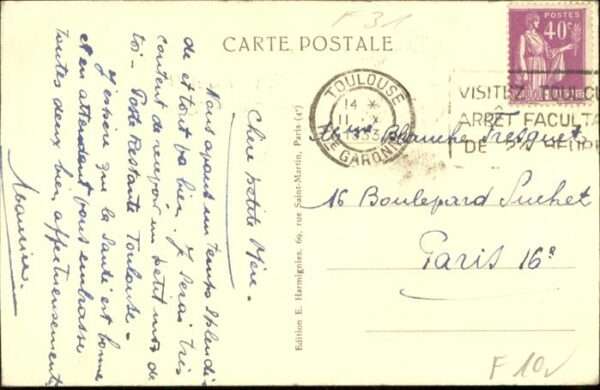 F 31
CARTE POSTALE
POSTES
40c
TOULOUSE
14 *
11 X
33
HTE GARONNE
VISITEZ TOULOU
ARRÊT FACULTA
DE
Blanche Fresquet
16 Boulevard Suchet
Paris 16e
Edition E. Harmignies, 69, rue Saint-Martin, Paris (4e)
Chère petite
Nous avons un temps splendi-
de et tout va bien. Je serai très
content de recevoir un petit mot de
toi - Poste Restante Toulouse -
J'espère que la Santé est bonne
et en attendant vous embrasse
toutes deux bien affectueusement
Maurice
F 10